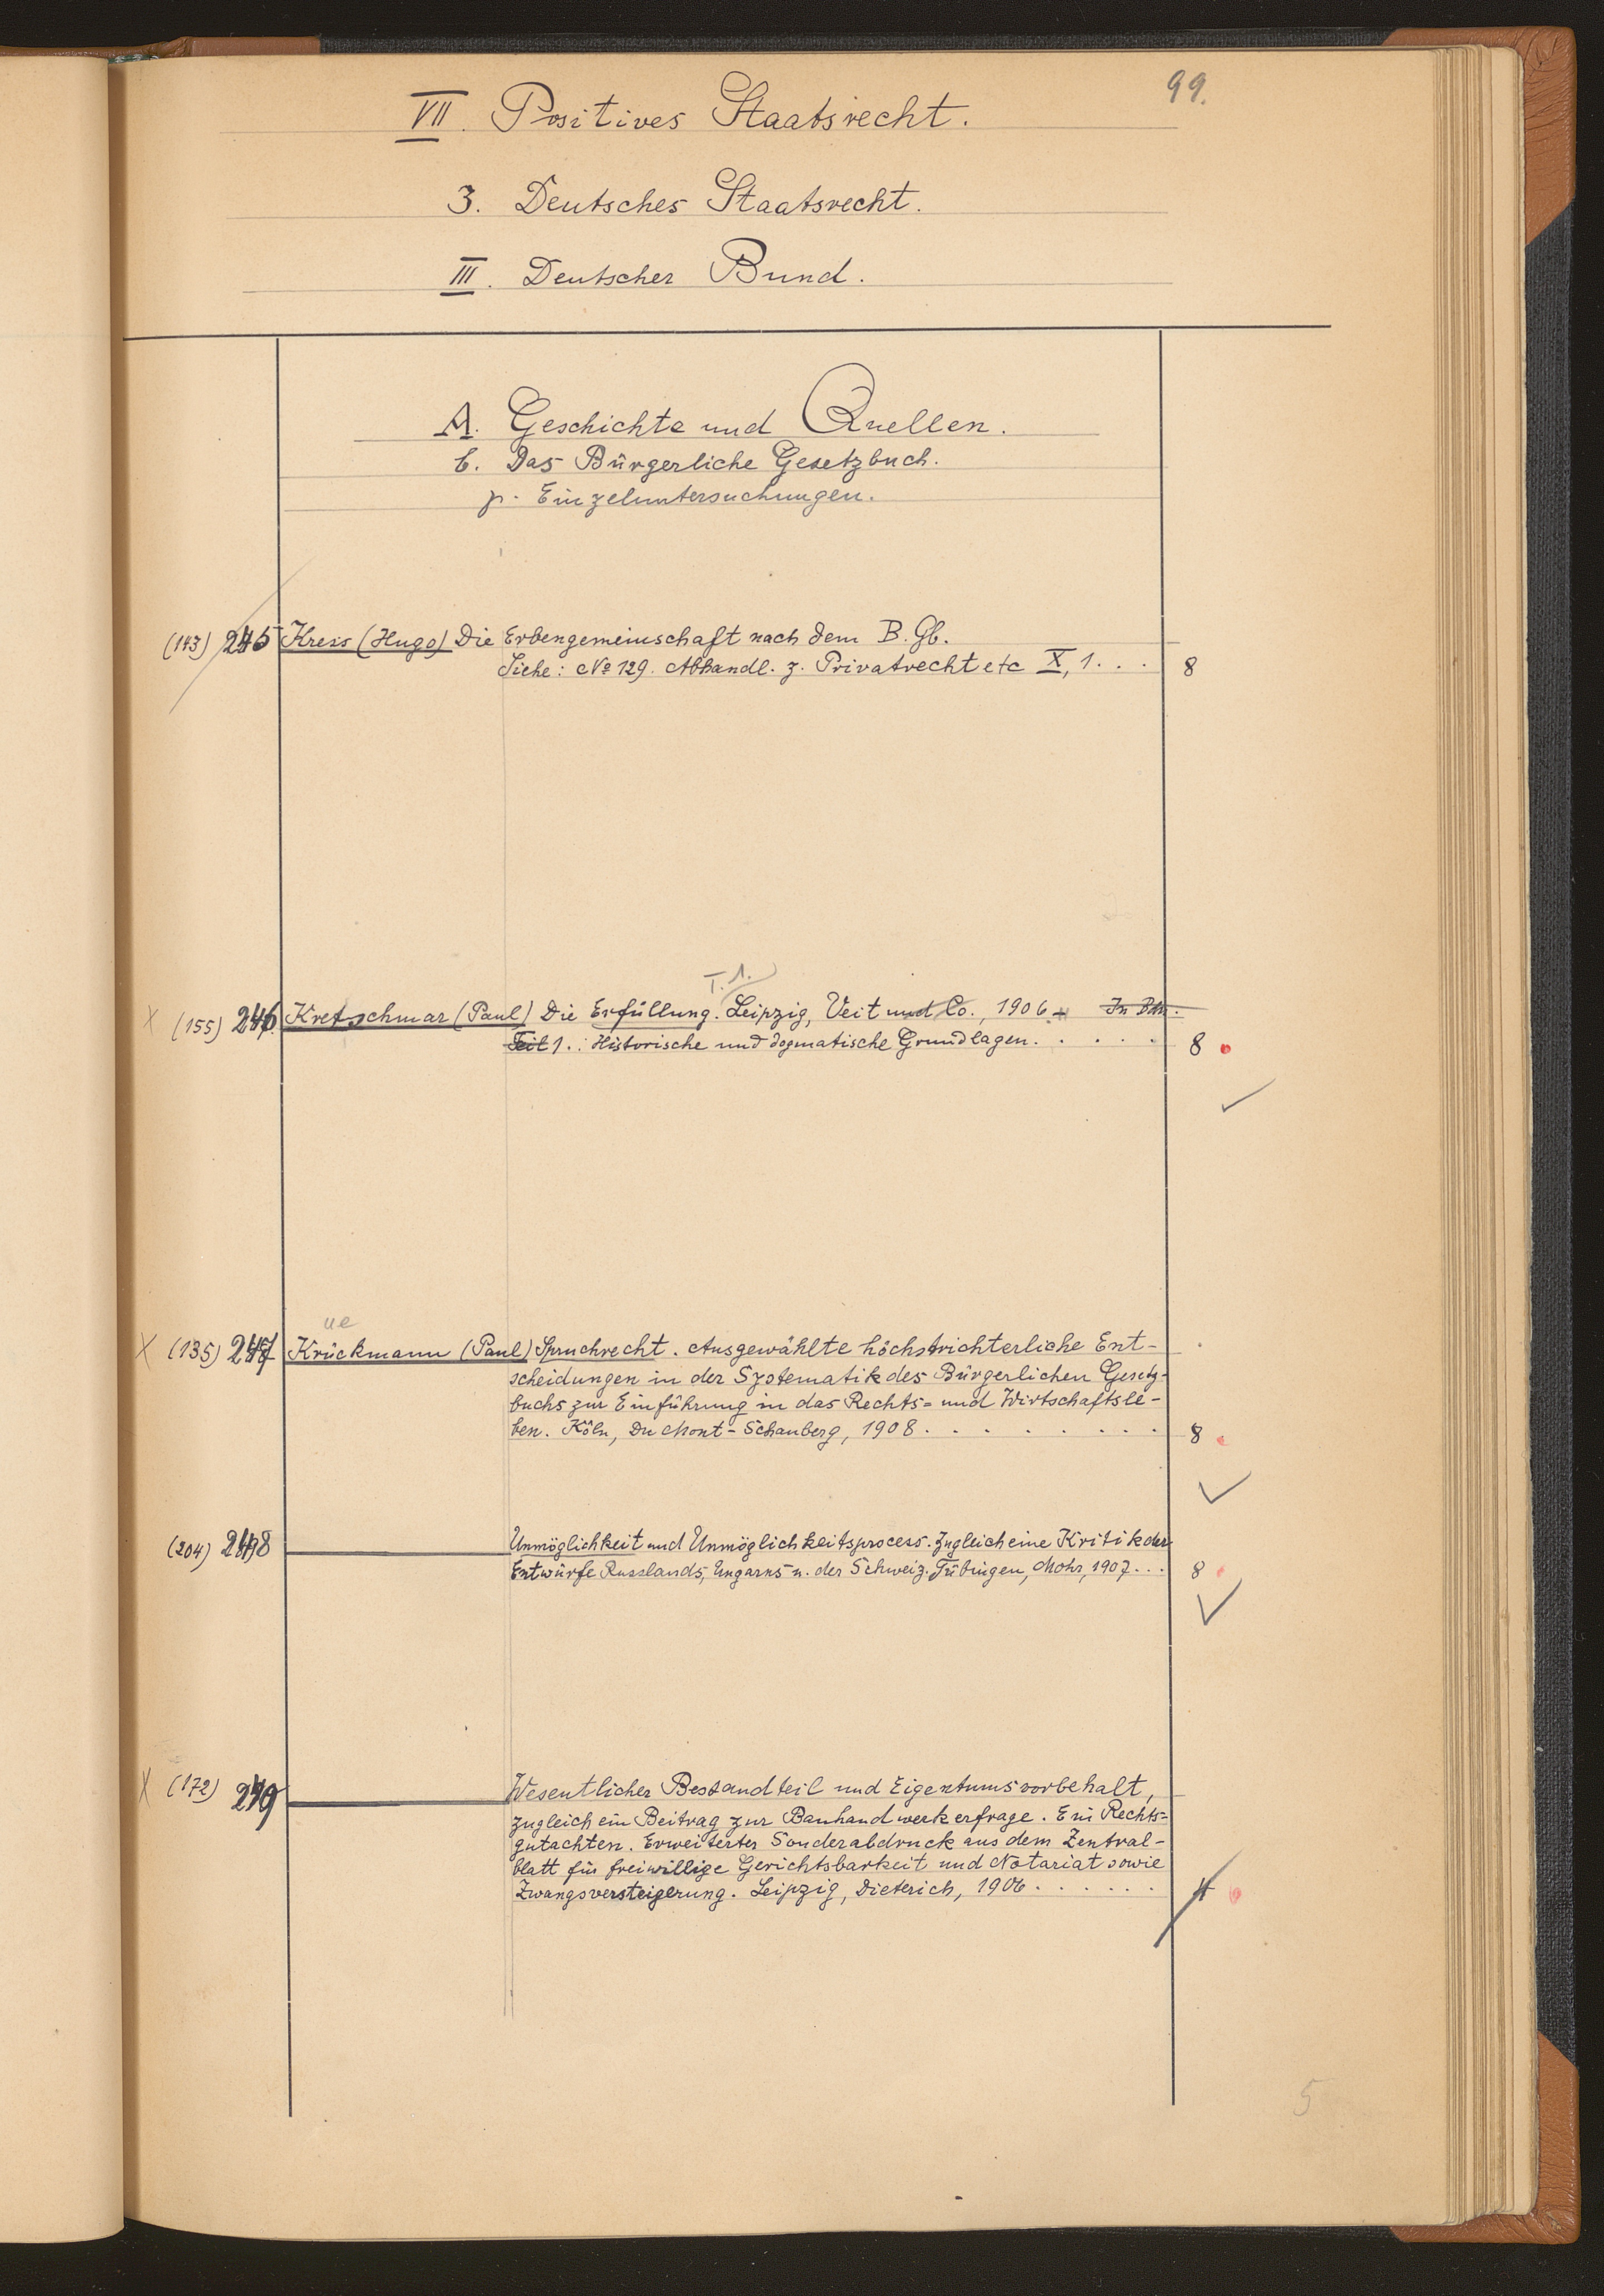 99.
VII. Positives Staatsrecht.
3. Deutsches Staatsrecht.
III. Deutscher Bund.
A. Geschichte und Quellen.
b. Das Bürgerliche Gesetzbuch.
γ. Einzeluntersuchungen.
(143) 245 Kress (Hugo) Die Erbengemeinschaft nach dem B. Gb.
Siehe: No 129. Abhandl. z. Privatrecht etc X, 1. . . 8
T. 1.
X (155) 246 Kretschmar (Paul) Die Erfüllung. Leipzig, Veit und Co., 1906 In Bdn.
Teil 1.: Historische und dogmatische Grundlagen. . . . . . 8
ue
X (135) 247 Krückmann (Paul) Spruchrecht. Ausgewählte höchstrichterliche Ent-
scheidungen in der Systematik des Bürgerlichen Gesetz-
buchs zur Einführung in das Rechts= und Wirtschaftsle-
ben. Köln, Du Mont-Schauberg, 1908. . . . . . . . . 8
(204) 248 Unmöglichkeit und Unmöglichkeitsprocess. Zugleich eine Kritik der
Entwürfe Russlands, Ungarns u. der Schweiz. Tübingen, Mohr, 1907. . . 8
X (172) 249 Wesentlicher Bestandteil und Eigentumsvorbehalt,
zugleich ein Beitrag zur Bauhandwerkerfrage. Ein Rechts=
gutachten. Erweiterter Sonderabdruck aus dem Zentral-
blatt für freiwillige Gerichtsbarkeit und Notariat sowie
Zwangsversteigerung. Leipzig, Dieterich, 1906. . . . . . 4
5